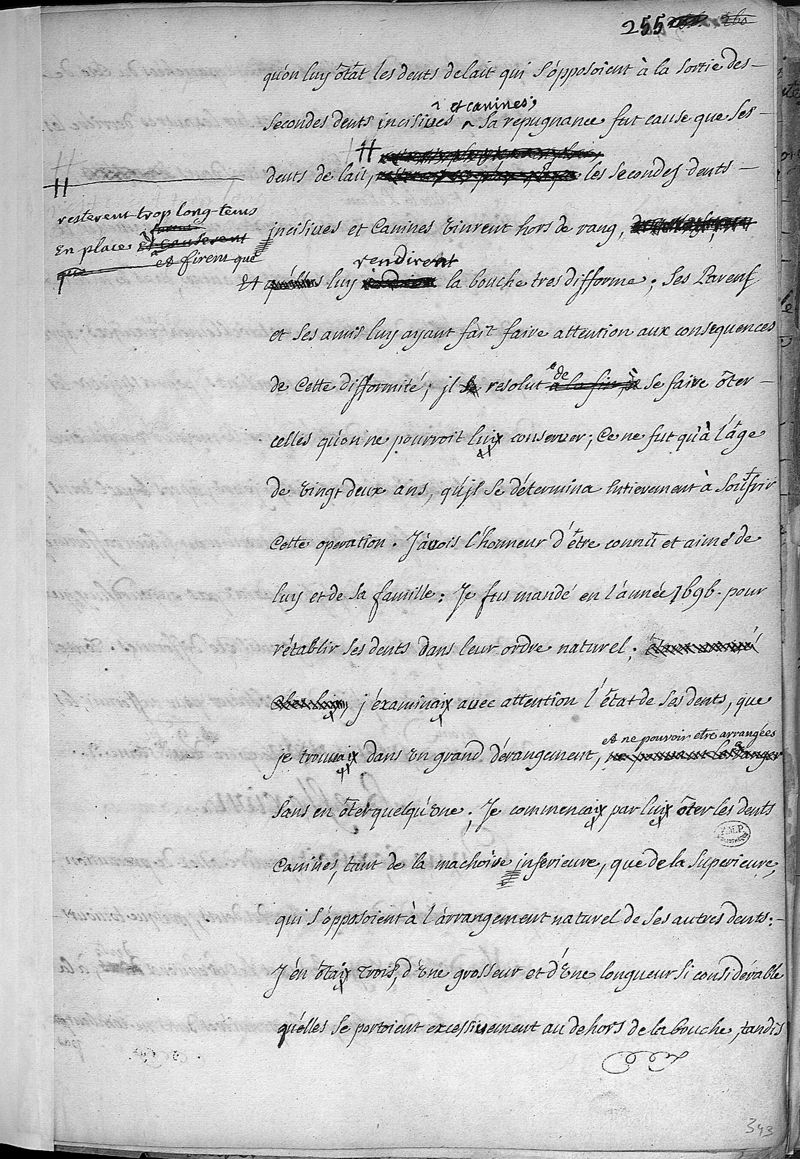 255
qu'on luy ôtât les dents de lait qui s'opposoient à la sortie des
et canines;
secondes dents incisives sa repugnance fut cause que ses
dents de lait, les secondes dents
resterent trop long-tems
en places
et firent que
incisives et canines vinrent hors de rang,
rendirent
et luy la bouche tres difforme; ses Parens
et ses amis luy ayant fait faire attention aux consequences
de
de cette difformité; il resolut à la fin, se faire ôter
celles qu'on ne pourroit luy conserver; Ce ne fut qu'à l'âge
de vingt deux ans, qu'jl se détermina entierement à souffrir
cette operation. J'avois l'honneur d'être connû et aimé de
luy et de sa famille: Je fus mandé en l'année 1696. pour
rétablir ses dents dans leur ordre naturel;
j'examinaix avec attention l'état de ses dents, que
et ne pouvoir etre arrangées
je trouvaix dans un grand dérangement,
sans en ôter quelqu'une; Je commencaix par luix ôter les dents
canines, tant de la machoire inferieure, que de la superieure,
qui s'opposoient à l'arrangement naturel de ses autres dents:
J'en ôtaix trois, d'une grosseur et d'une longueur si considérable
qu'elles se portoient excessivement au dehors de la bouche, tandis
343